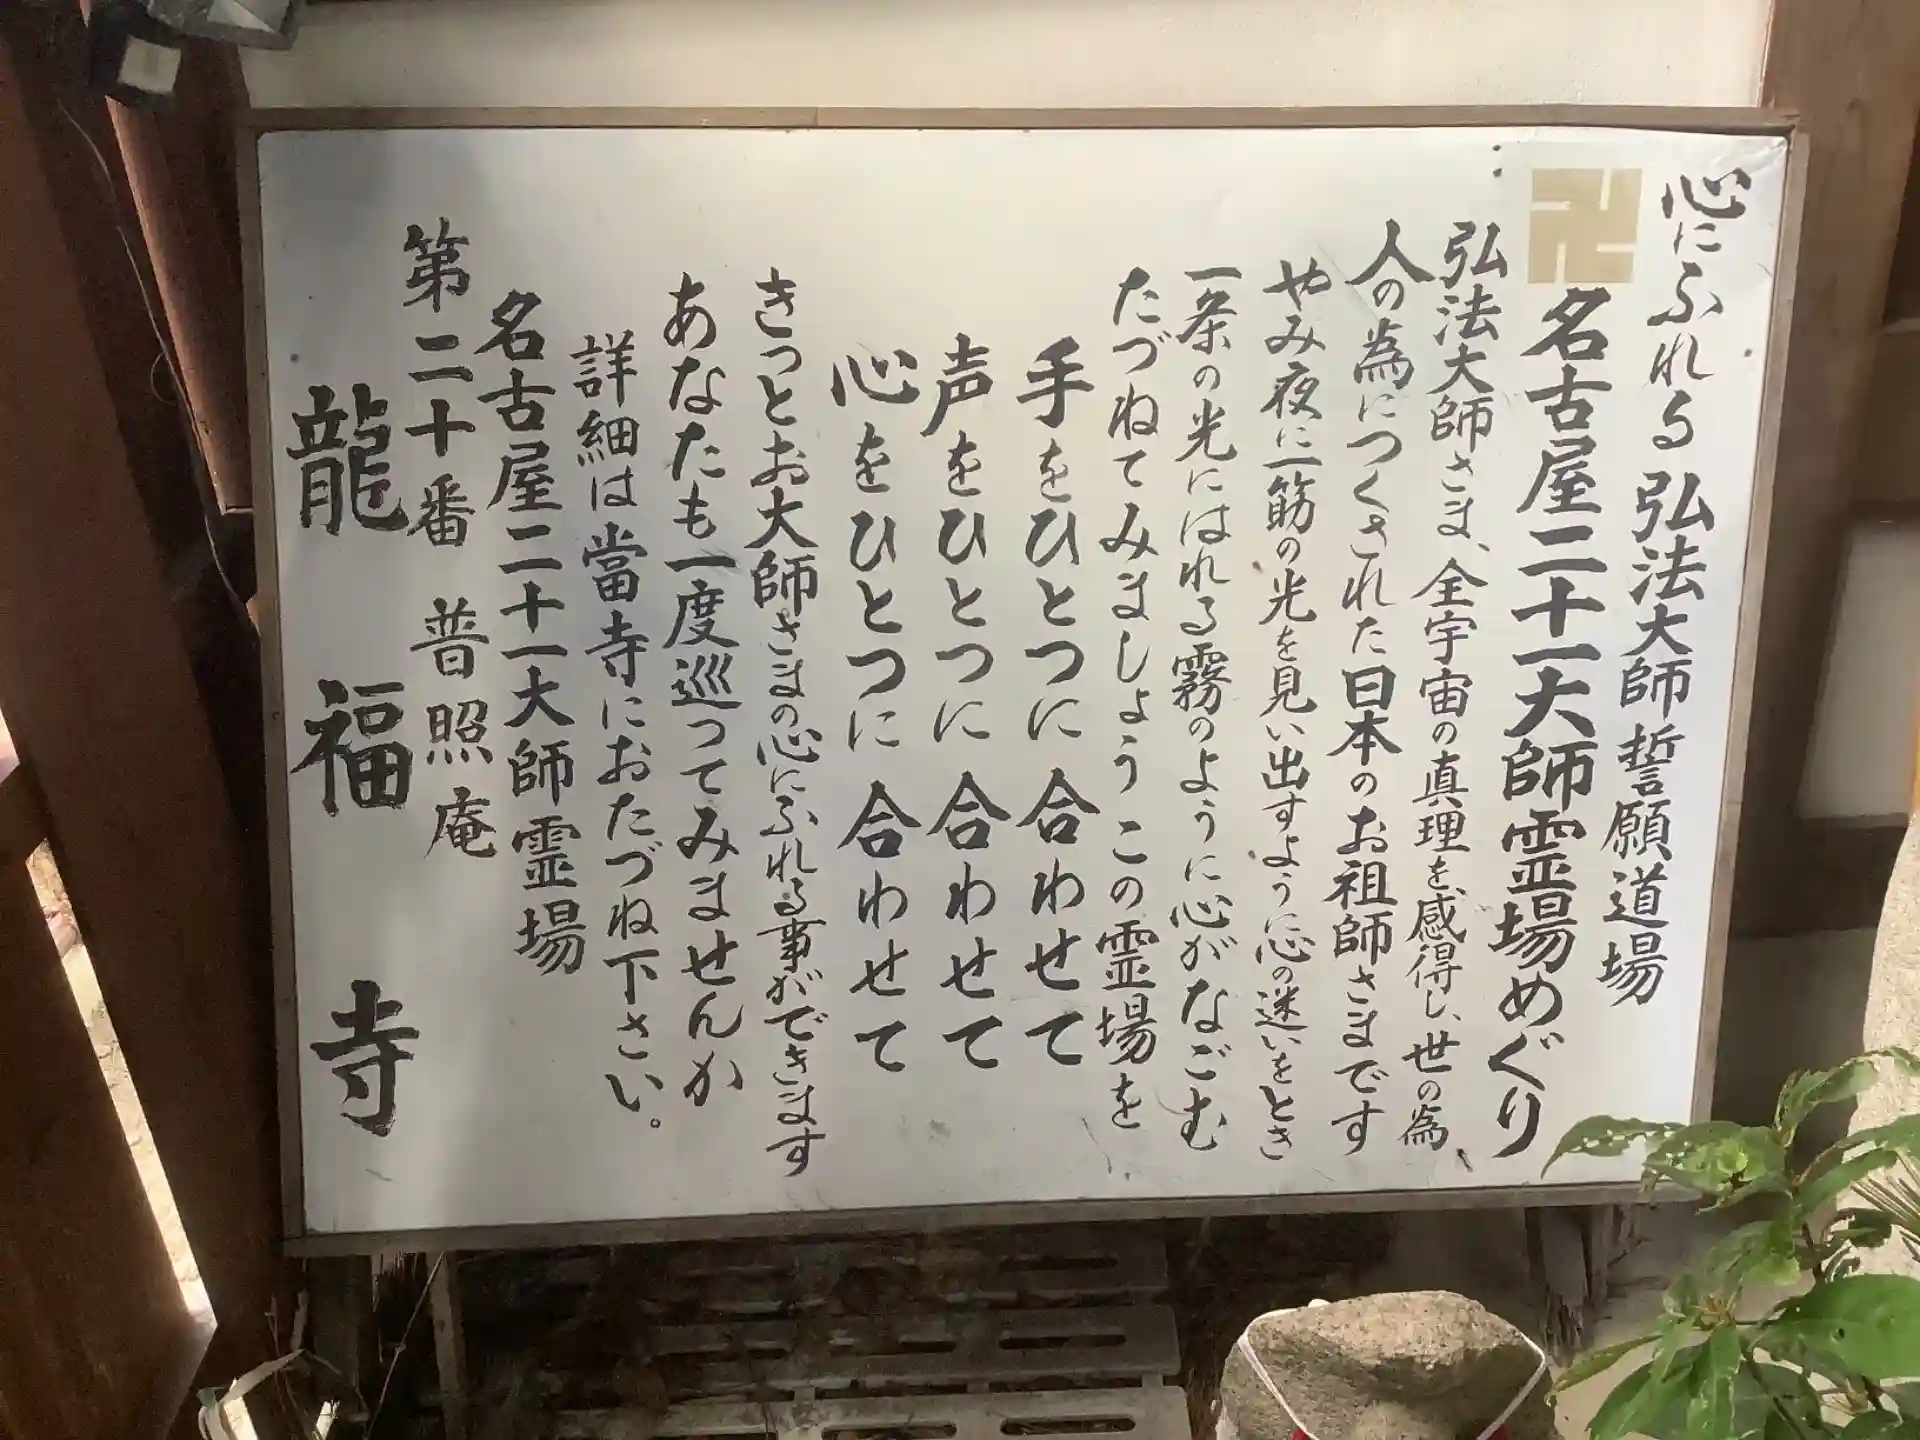 心にふれる 弘法大師誓願道場
卍 名古屋二十一大師霊場めぐり
弘法大師さま、全宇宙の真理を感得し、世の為
人の為につくされた日本のお祖師さまです
やみ夜に一筋の光を見い出すように心の迷いをとき
一条の光にはれる霧のように心がなごむ
たづねてみましょうこの霊場を
手をひとつに合わせて
声をひとつに合わせて
心をひとつに合わせて
きっとお大師さまの心にふれる事ができます
あなたも一度巡ってみませんか
詳細は當寺におたづね下さい。
名古屋二十一大師霊場
第二十番 普照庵
龍福寺